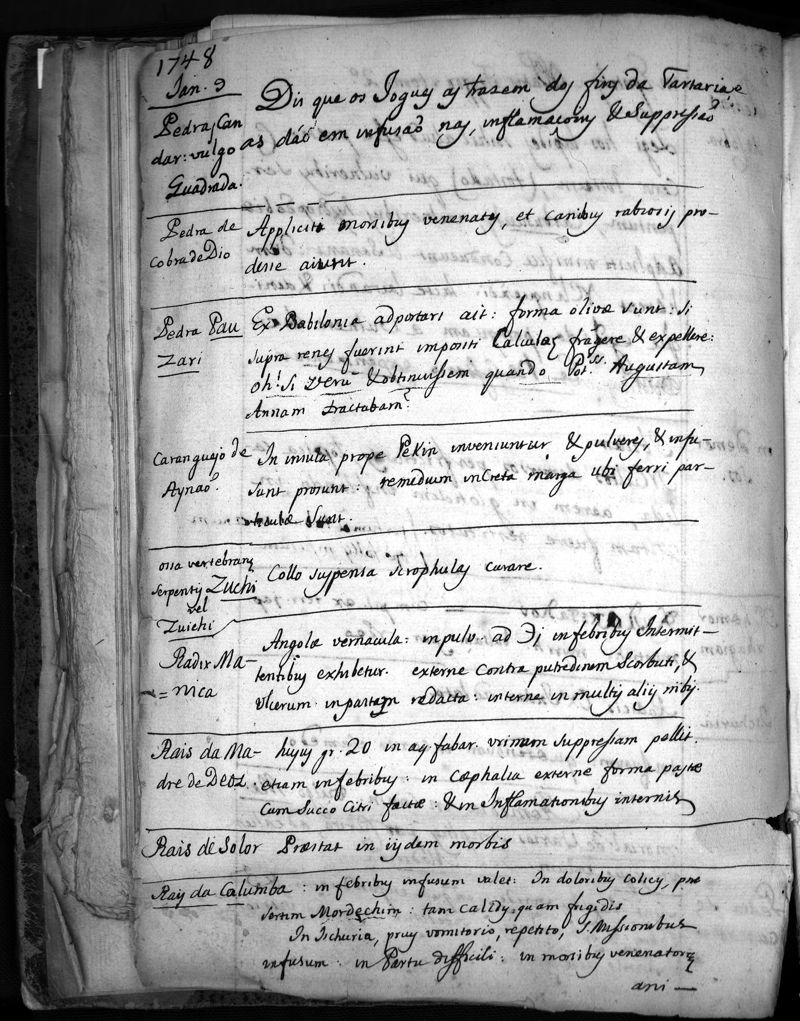 1748
Jan. 9
Dis que os Jogues as trazem dos fins da Tartaria e
Pedras Can
dar: vulgo
Quadrada.
as daõ em infusaõ nas, inflamaçoins & Suppressaõ
Pedra de
Cobra de Dio
Applicitæ morsibus venenatis, et canibus rabiosis pro-
desse aiunt.
Pedra Pau
Zari
Ex Babilonia adportari ait: forma olivæ sunt: si
supra renes fuerint impositi Calculos frãgere & expellere:
oh! si verũ & obtinuissem quando Augustam
Annam tractabam!
Caranguejo de
Aynaõ.
In insula prope Pekin inveniuntur & pulveres, & infu-
sunt prosunt: remedium in Creta marga ubi ferri par-
sunt.
ossa vertebrarũ
serpentis Zuchi
vel
Zuichi
Collo suspensa scrophulas curare.
Radix Ma-
=nica
Angolæ vernacula: in pulv. ad ℈j in febribus Intermit-
tentibus exhibetur. externe contra putredinem Scorbuti, &
ulcerum in pastam redacta: interne in multis aliis mibj.
Rais da Ma-
dre de Deos
hujus gr. 20 in aq fabar. urinam suppressam pellit.
etiam in febribus: in Cæphalia externe forma pastæ
Cum Succo Citri factæ: & in Inflamationibus internis
Rais de Solor Præstat in iisdem morbis
Rais da Calumba: in febribus infusum valet: In doloribus colicis, præ
sertim Mordechim: tam Calidis quam frigidis
In Ischuria, prius vomitorio, repetito, S. Missionibus
infusum: in Partu difficili: in morsibus venenatorũ
ani—